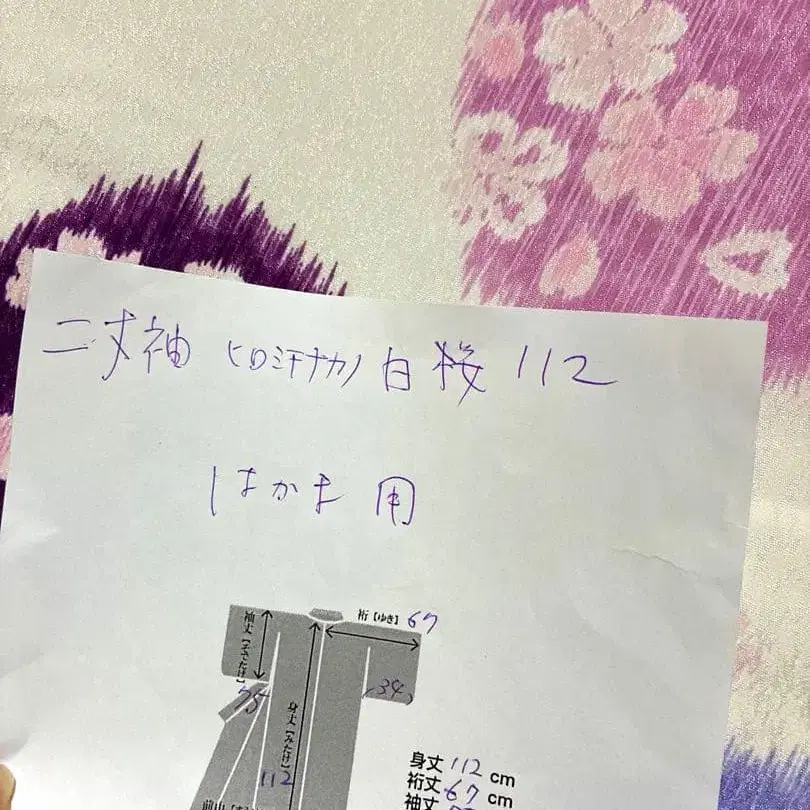 二丈袖 ヒロミチナカノ 白 桜 112
はかま 用
裄【ゆき】 67
袖丈【そでたけ】
34
75
身丈【みたけ】
112
身丈 112 cm
裄丈 67 cm
袖丈